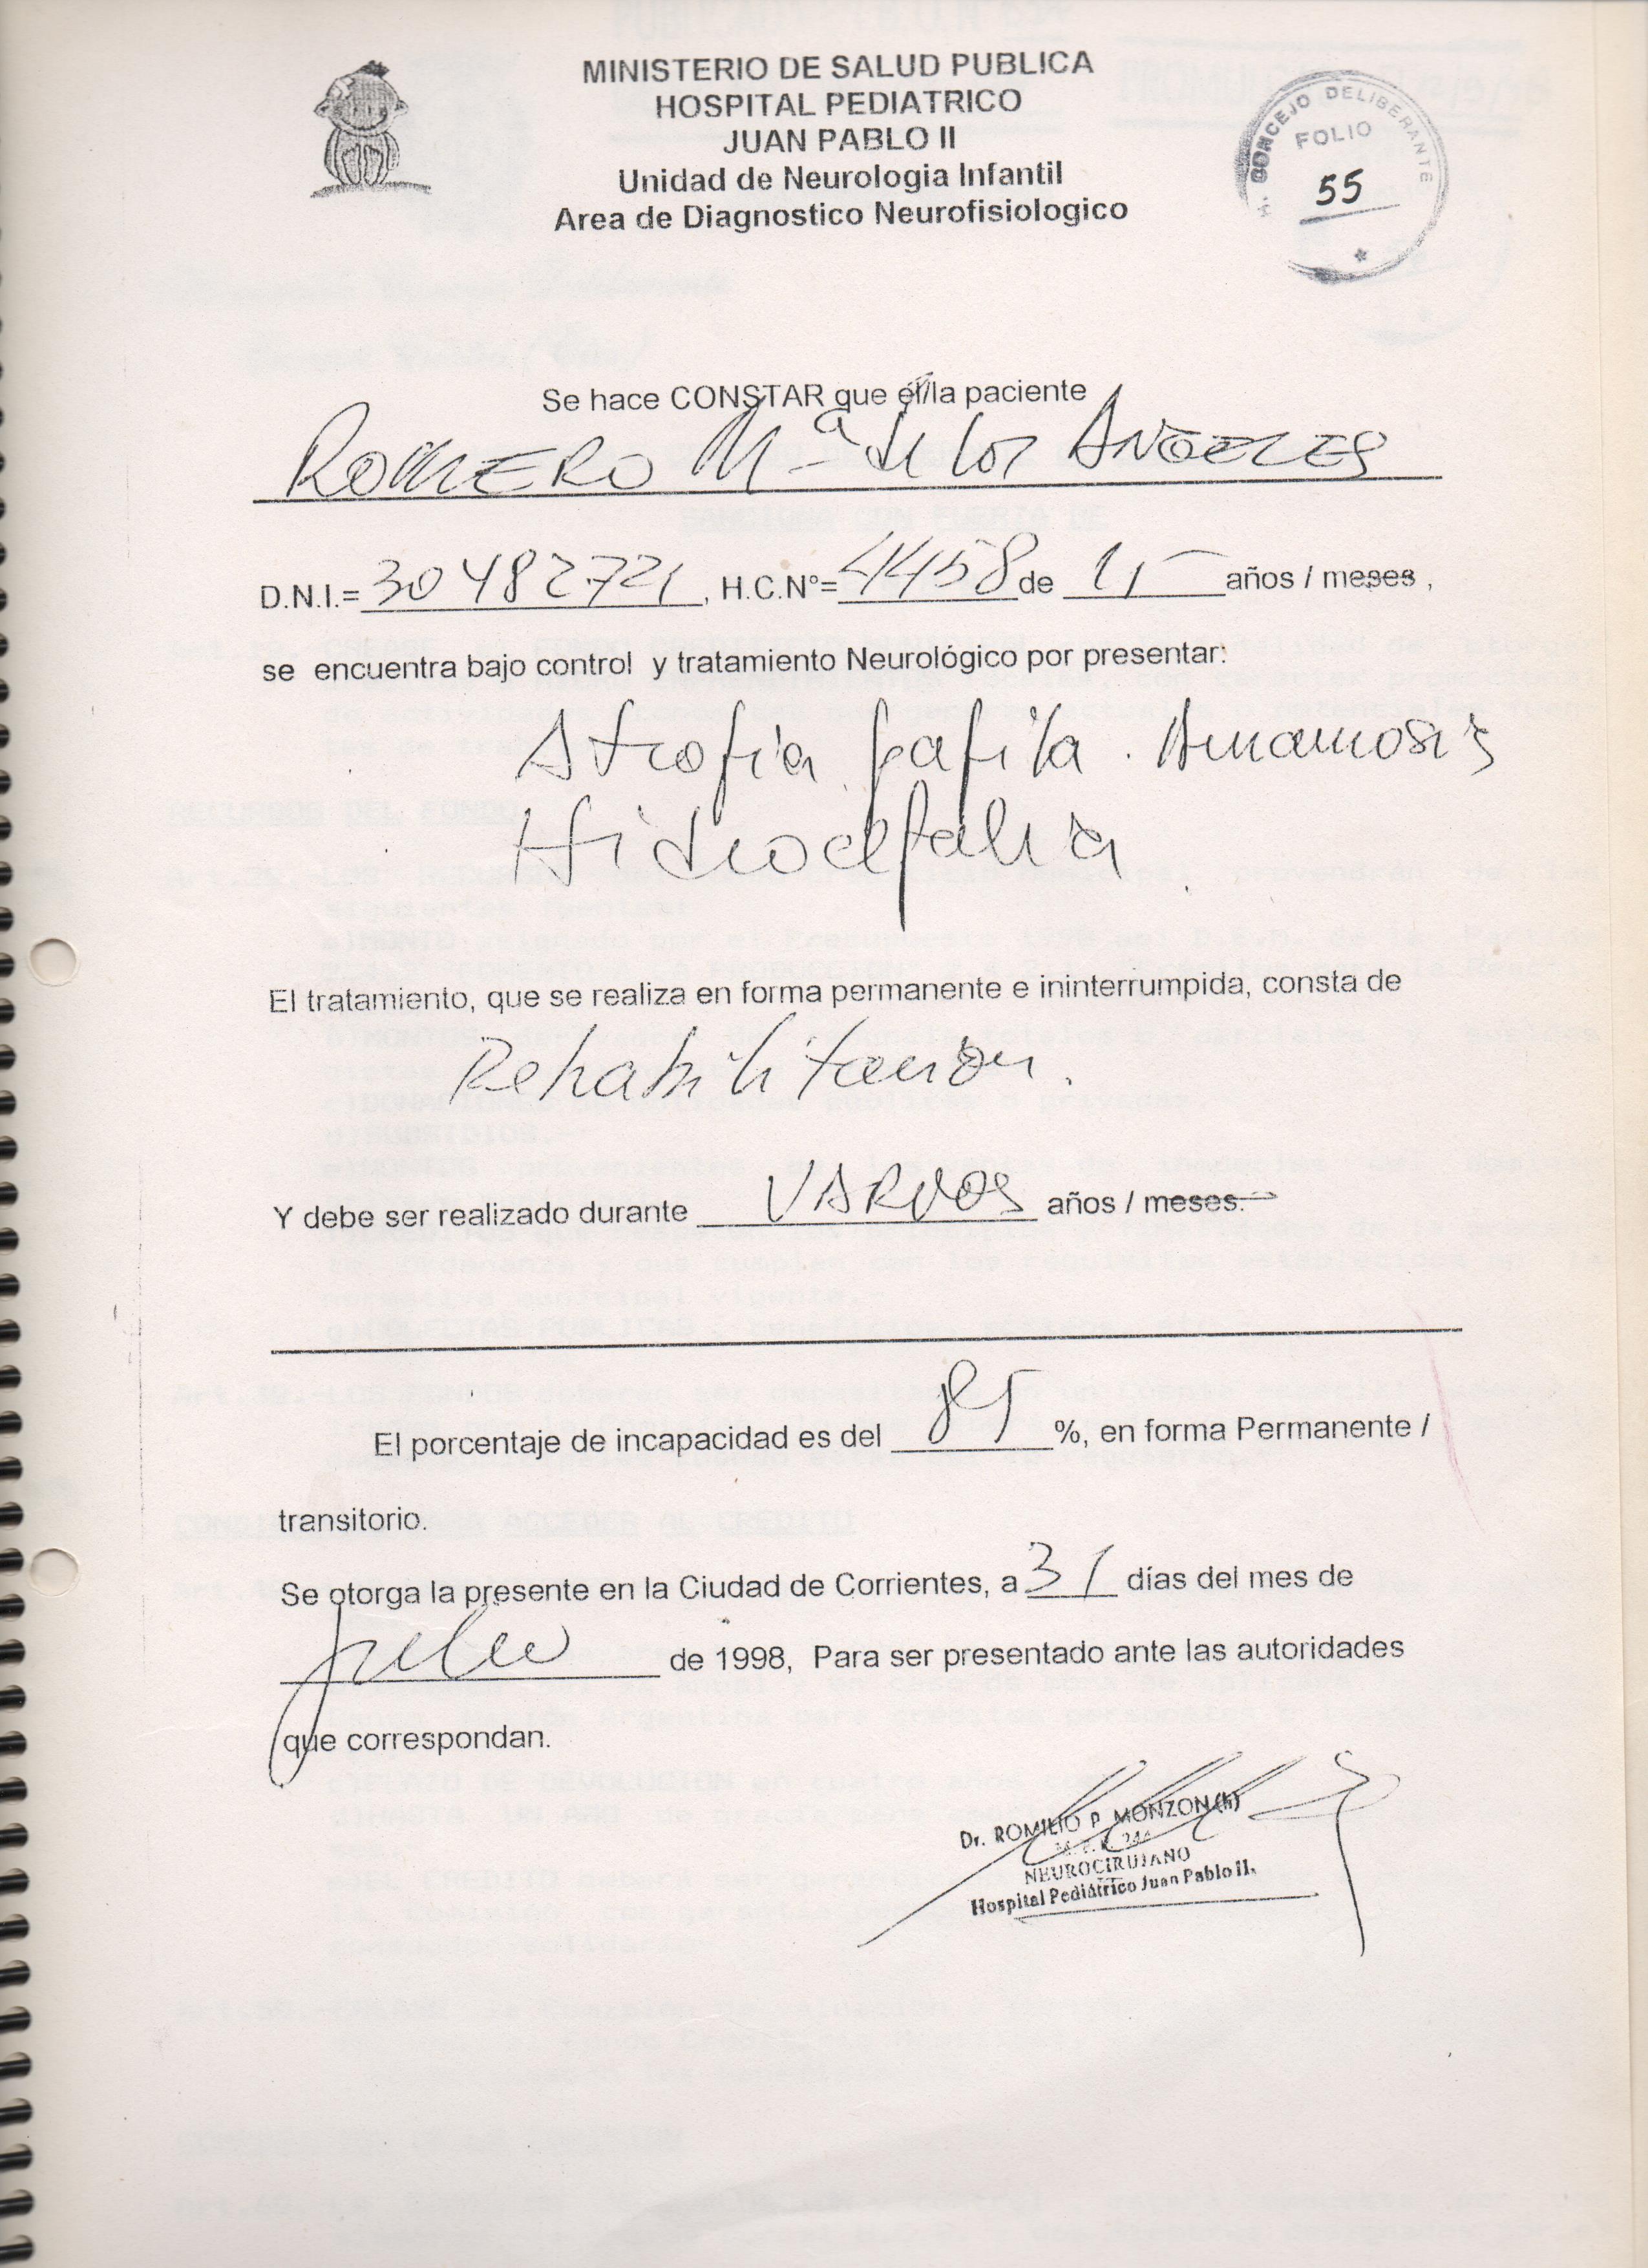 MINISTERIO DE SALUD PUBLICA
HOSPITAL PEDIATRICO
JUAN PABLO II
Unidad de Neurologia Infantil
Area de Diagnostico Neurofisiologico
H. CONCEJO DELIBERANTE
FOLIO
55
Se hace CONSTAR que el/la paciente
ROMERO Mª de los ANGELES
D.N.I.= 30482721, H.C.Nº= 4458 de 15 años / meses ,
se encuentra bajo control y tratamiento Neurológico por presentar:
Atrofia papila . Amaurosis
Hidrocefalia
El tratamiento, que se realiza en forma permanente e ininterrumpida, consta de
Rehabilitación.
Y debe ser realizado durante VARIOS años / meses.
El porcentaje de incapacidad es del 85 %, en forma Permanente /
transitorio.
Se otorga la presente en la Ciudad de Corrientes, a 31 días del mes de
julio de 1998, Para ser presentado ante las autoridades
que correspondan.
Dr. ROMILIO P. MONZON (h)
NEUROCIRUJANO
Hospital Pediátrico Juan Pablo II.